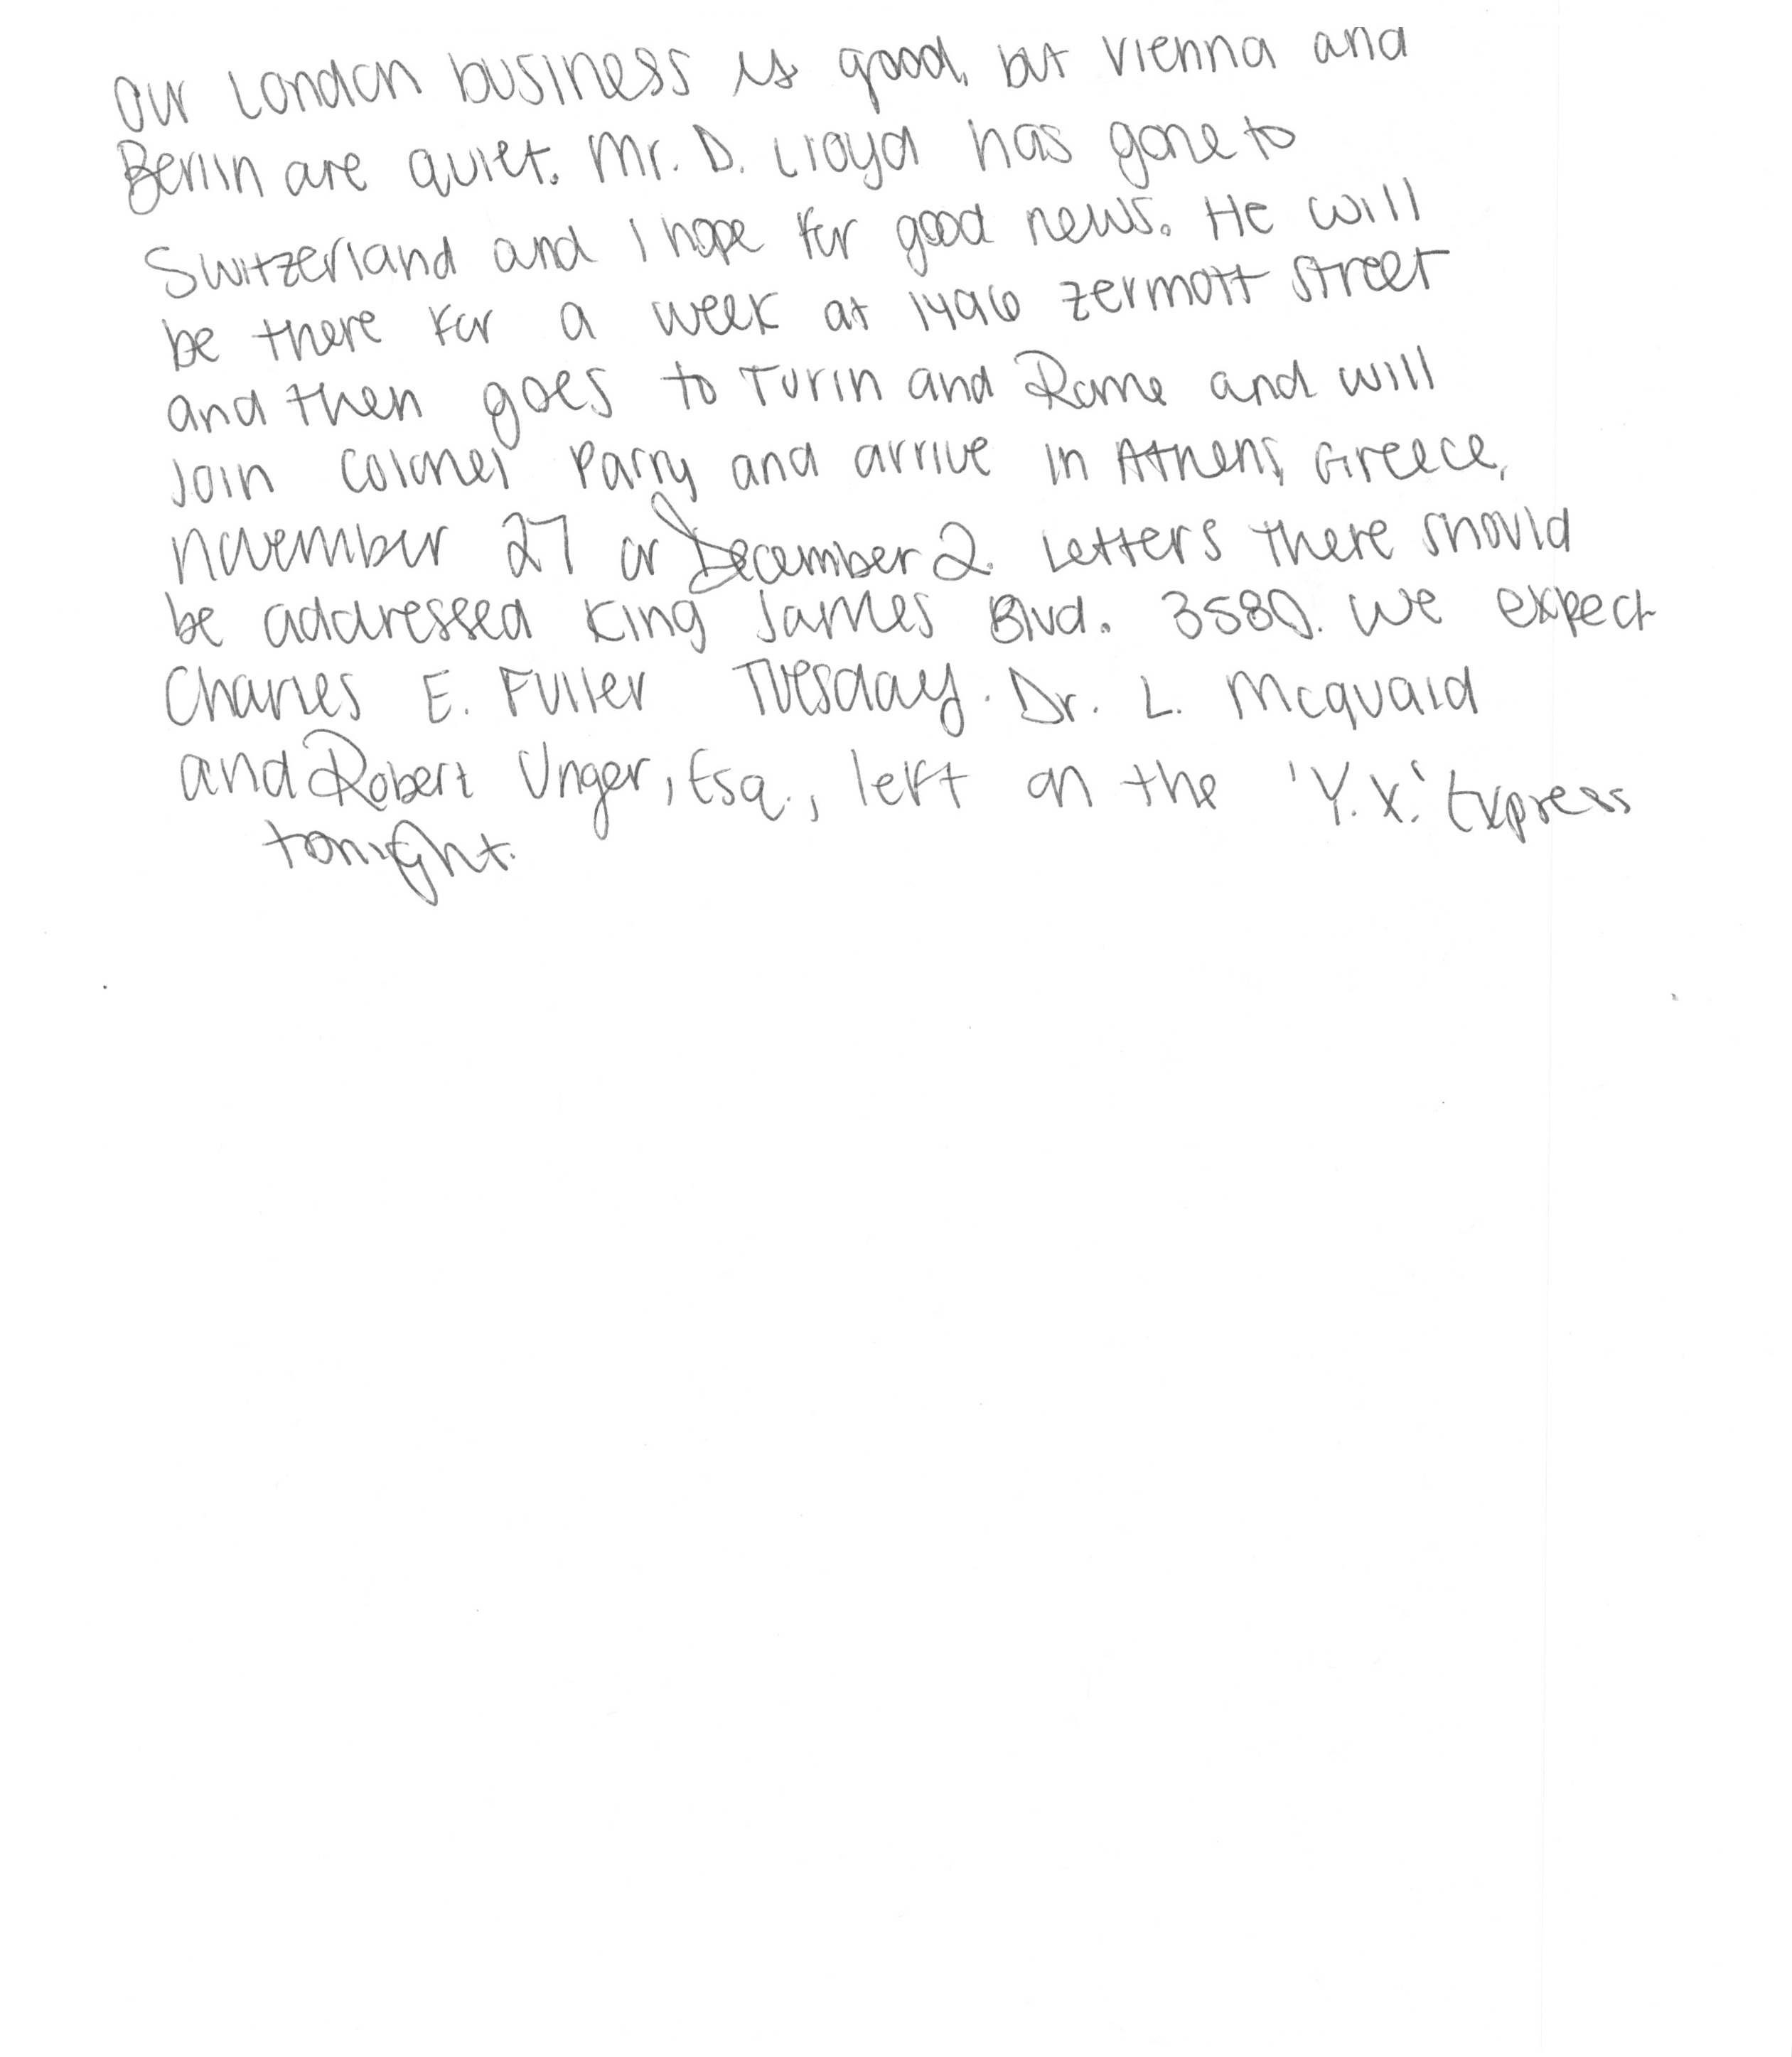 Our London business is good, but Vienna and
Berlin are quiet. Mr. D. Lloyd has gone to
Switzerland and I hope for good news. He will
be there for a week at 1496 Zermott Street
and then goes to Turin and Rome and will
Join Colonel Parry and arrive in Athens, Greece,
November 27 or December 2. Letters there should
be addressed King James Blvd. 3580. We expect
Charles E. Fuller Tuesday. Dr. L. McQuaid
and Robert Unger, Esq., left on the 'Y.X.' Express
tonight.